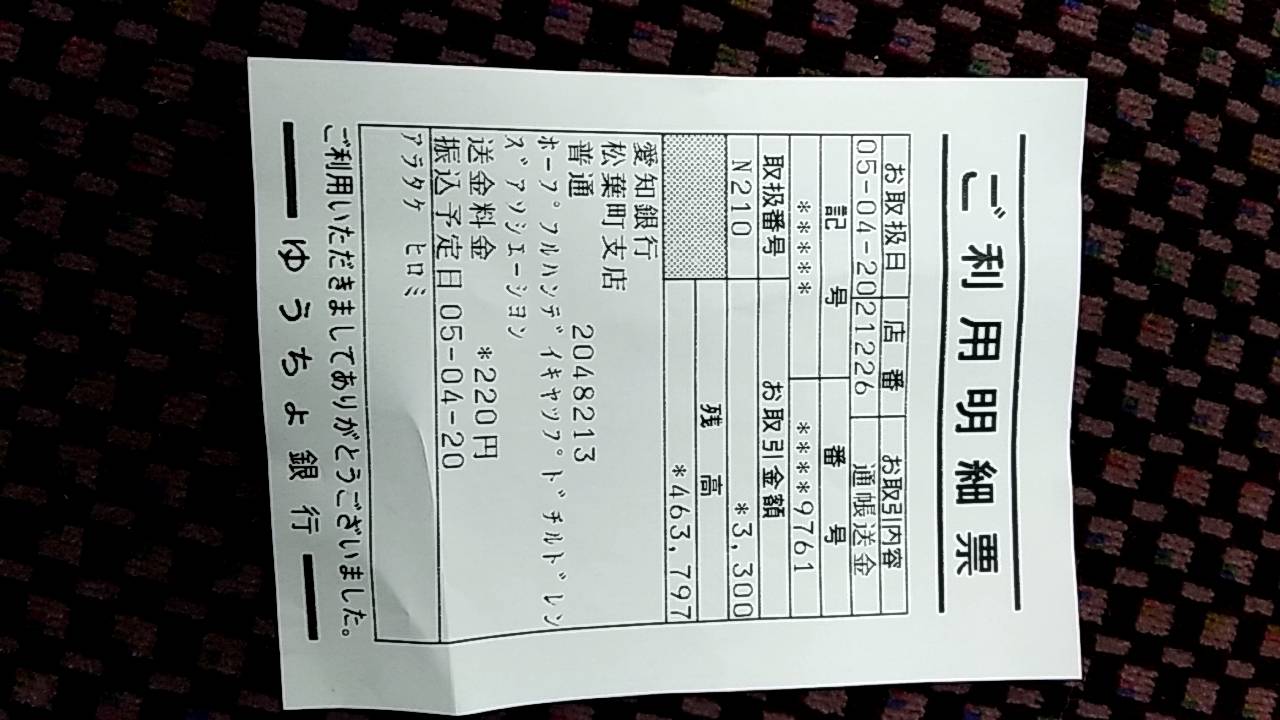 ご利用明細票
お取扱日 店番 お取引内容
05-04-20 21226 通帳送金
記号 番号
***** ****9761
取扱番号 お取引金額
N210 *3,300
残高
*463,797
愛知銀行
松葉町支店
普通 2048213
ホープフルハンデイキヤツプドチルドレン
ズアソシエーシヨン
送金料金 *220円
振込予定日 05-04-20
アラタケ ヒロミ
ご利用いただきましてありがとうございました。
ゆうちょ銀行